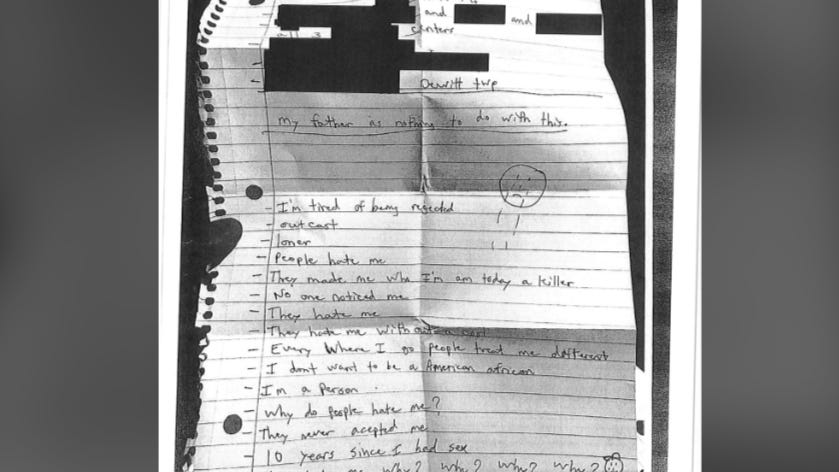 and and
all 3 centers
Dewitt twp
My father is nothing to do with this.
- I'm tired of being rejected
- outcast
- loner
- People hate me
- They made me who I'm am today a killer
- No one noticed me
- They hate me
- They hate me without a
- Every where I go people treat me different
- I don't want to be a American african
- I'm a person.
- Why do people hate me?
- They never acepted me
- 10 years since I had sex
me why? why? why? why?